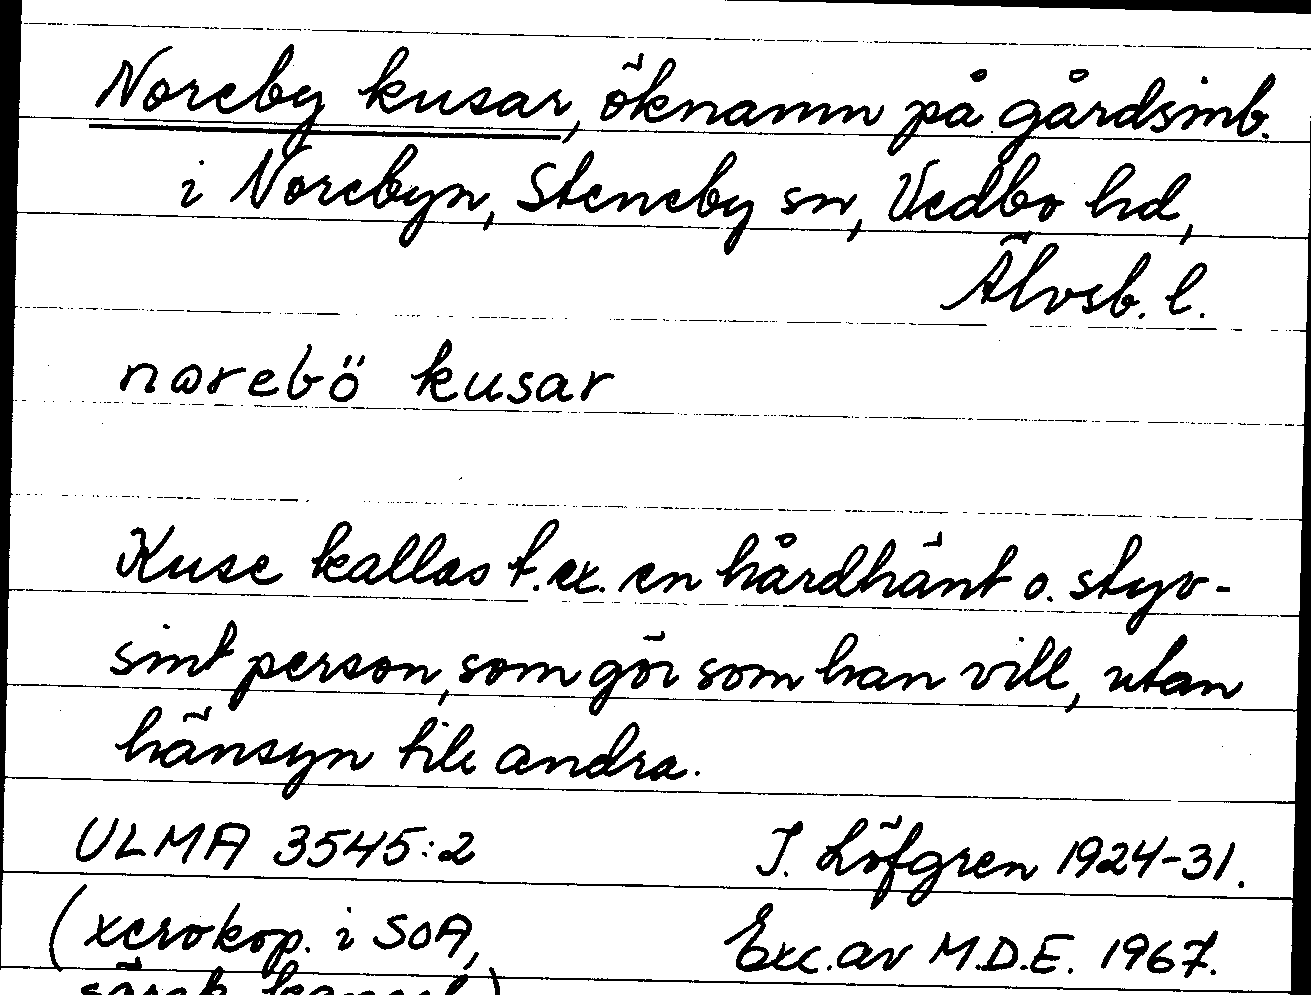 Noreby kusar, öknamn på gårdsinb.
i Norebyn, Steneby sn, Vedbo hd,
Älvsb. l.
norebö kusar
Kuse kallas t.ex. en hårdhänt o. styv-
sint person, som gör som han vill, utan
hänsyn till andra.
ULMA 3545:2
J. Löfgren 1924-31.
(xerokop. i SOA,
Exc. av M.D.E. 1967.